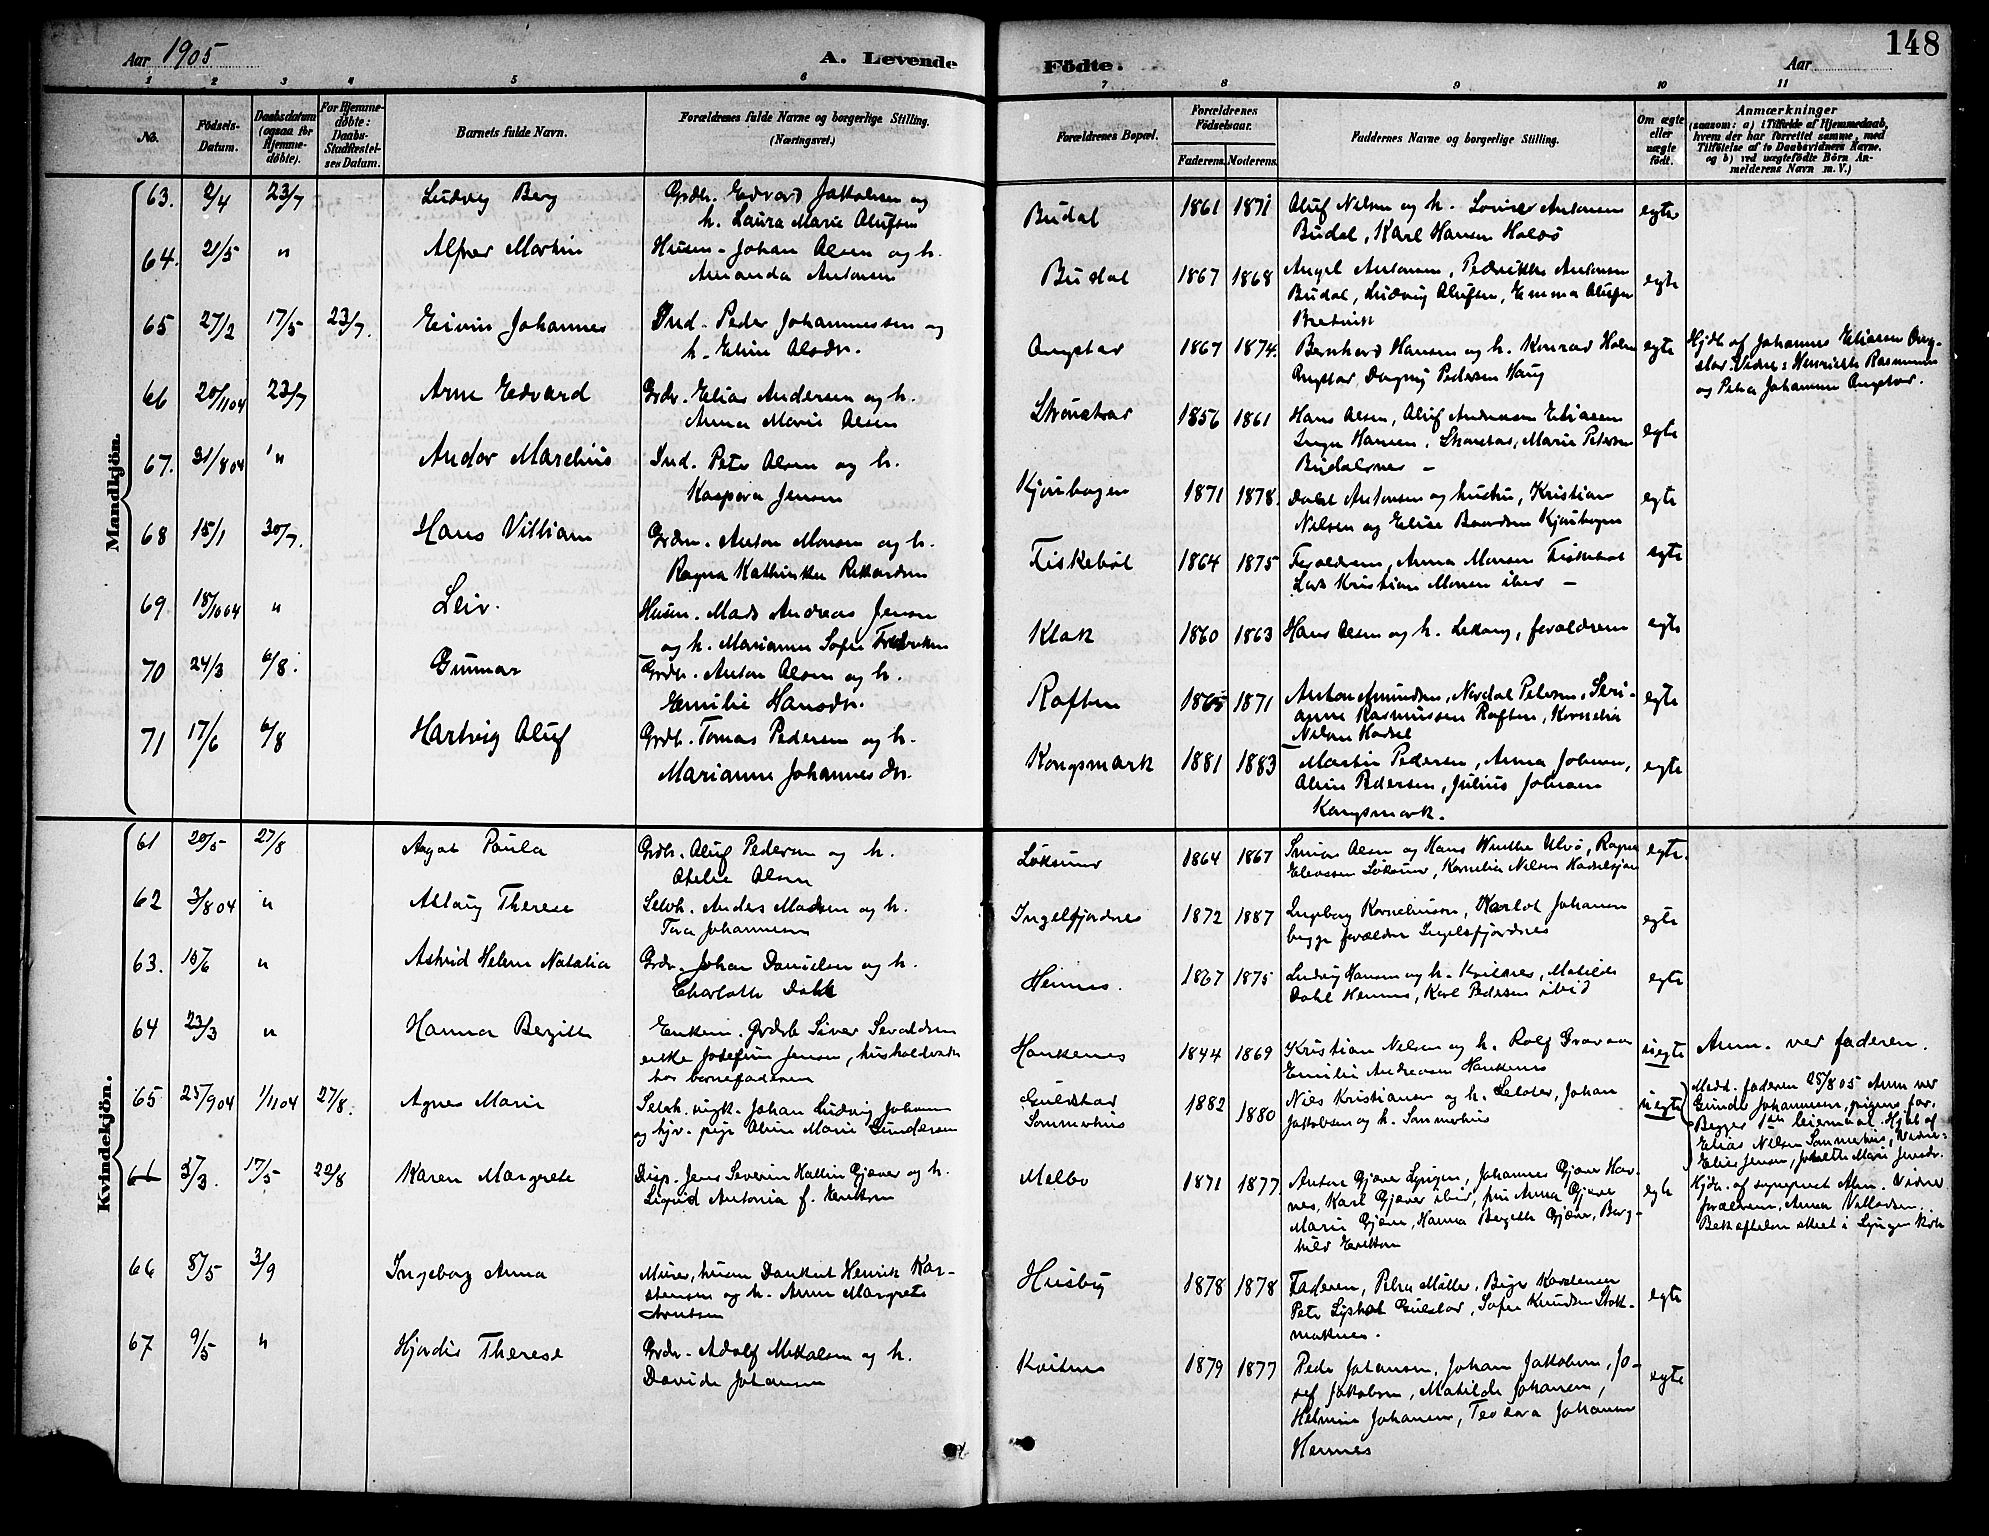 Aar 1905
A. Levende
Födte.
Aar
148
1 2 3 4 5 6 7 8 9 10 11
No.
Födsels-Datum.
Daabsdatum (ogsaa for Hjemmedöbte).
For Hjemmedöbte: Daabs-Stadfæstelses Datum.
Barnets fulde Navn.
Forældrenes fulde Navne og borgerlige Stilling.
(Næringsvei.)
Forældrenes Bopæl.
Forældrenes Födselsaar.
Faderens. Moderens.
Faddernes Navne og borgerlige Stilling.
Om ægte eller uægte födt.
Anmærkninger
(saasom: a) i Tilfælde af Hjemmedaab, hvem der har forrettet samme, med Tilföielse af to Daabsvidners Navne. og b) ved uægtefödte Börn Anmelderens Navn m. V.)
Mandkjön.
63. 2/4 23/7 Ludvig Berg
Grdbr. Edvard Jakobsen og
h. Laura Marie Olufsen
Budal 1861 1871
Oluf Nelsen og h. Antonsen
Budal, Karl Hansen Holsø
egte
64. 21/5 " Alfred Martin
Husm. Johan Olsen og h.
Amanda Antonsen
Budal 1867 1868
Angel Antonsen, Antonsen
Budal, Ludvig Olufsen, Emma Olufsen
egte
65 27/2 17/5 23/7. Eivin Johannes
Ind. Peder Johannessen og
h. Eline Olsdr.
Ongstad 1867 1874.
Bernhard Hansen og h. Konrad Holm
Ongstad, Dagny Pedersen Haug
egte
Hjdbt af Johannes Eliassen Ong-
stad. Vidne: Henriette Rasmussen
og Petra Johansen Ongstad.
66 20/1104 23/7 Arne Edvard
Grdbr. Elias Andersen og h.
Anna Marie Olsen
1856 1861
Hans Olsen, Oluf Andreasen Eliasen
Inga Hansen, Marie Petersen
Budalsnes –
egte
67. 31/804 " Andor Marelius
Ind. Peter Olsen og h.
Kaspara Jensen
Kjørbogen 1871 1878.
Antonsen og hustru, Kristian
Nelsen og Elise Kjørbogen
egte
68 15/1 30/7. Hans Villiam
Grdbr. Anton Monsen og h.
Ragna Kathinka Rikardsen
Fiskebøl 1864 1875
Forældrene, Anna Monsen Fiskebøl
Lars Kristian Monsen ibid –
egte
69 18/1004 " Leiv.
Husm. Mads Andreas Jensen
og h. Marianne Sofie Fredriksen
Klak 1860 1863
Hans Olsen og h. Lekang, forældrene
egte
70 24/3 6/8. Gunnar
Grdbr. Anton Olsen og h.
Emilie Hansdr.
Raften 1865 1871
Anton Amundsen, Nordal Petersen, Seri-
anne Rasmussen Raften, Kornelia
Nelsen Hadsel
egte
71 17/6 6/8 Hartvig Oluf
Grdbr. Tomas Pedersen og h.
Marianne Johannesdr.
Kongsmark 1881 1883
Martin Pedersen, Anna Johnsen,
Oline Pedersen, Julius Johnsen
Kongsmark.
egte
Kvindekjön.
61 20/5 27/8 Aagot Paula
Grdbr. Oluf Pedersen og h.
Olsen
Løksund 1864 1867
Simon Olsen og Hans Winther Ulvø, Ragna
Eliassen Løksund, Kornelia Nelsen Hadselsjøen
egte.
62 3/804 " Aslaug Therese
Selvh. Anders Madsen og h.
Tora Johannessen
Ingelfjordnes 1872 1887
Ingeborg Korneliussen, Karlot Johansen
begge forældre Ingelsfjordnes
egte
63. 15/6 " Astrid Helene Natalia
Grdbr. Johan Danielsen og h.
Charlotte Dahl
Hennes. 1867 1875
Ludvig Hansen og h. Kvitnes, Matilde
Dahl Hennes, Karl Pedersen ibid
egte
64 23/3 " Hanna Bergitte
Enkem. Grdbr Siver Sevaldsen
enke Josefine Jensen, husholderske
hos barnefaderen
Hankenes 1844 1869
Kristian Nelsen og h. Rolf Gravaa
Emilie Andreasen Hankenes
uegte
Anm. ved faderen.
65 25/904 1/1104 27/8. Agnes Marie
Selvh. ungk. Johan Ludvig Johansen
og hjv. pige Oline Marie Gundersen
Guldstad
Sommerhus
1882 1880
Niels Kristiansen og h. Johan
Jakobsen og h. Sommerhus
uegte
Medd. faderen 25/8 05 Anm ved
Gunder Johannesen, pigens far.
Begges 1ste leiermaal. Hjdbt af
Elias Nelsen Sommerhus, Vidne:
Elise Jensen, Marie Jensdr.
66 5/3. 17/5 22/8 Karen Margrete
Disp. Jens Severin Kallin Gjæver og h.
Sigrid Antonia f. Eriksen
Melbo 1871 1877.
Anton Gjæver Lyngen, Johannes Gjæver Hav-
nes, Karl Gjæver ibid, frk Anna Gjæver
Marie Gjæver, Hanna Bergitte Gjæver, Borg-
hild Eriksen
egte
Hjdbt. af sogneprest Vidne
forældrene, Anna
Lyngen Kirke
66 8/5 3/9 Ingeborg Anna
Murer, husm Dankert Henrik Kar-
stensen og h. Anna Margrete
Arntsen
Husby 1878 1878
Faderen, Petra Møller, Karstensen
Peter Guldstad, Sofie Knudsen Stok-
marknes.
egte
67 9/5 " Hjørdis Therese
Grdbr. Adolf Mikalsen og h.
Davida Johansen
Kvitnes 1879 1877
Peder Johansen, Johan Jakobsen, Jo-
sef Jakobsen, Matilde Johansen,
Helmine Johansen, Teodora Johansen
Hennes
egte